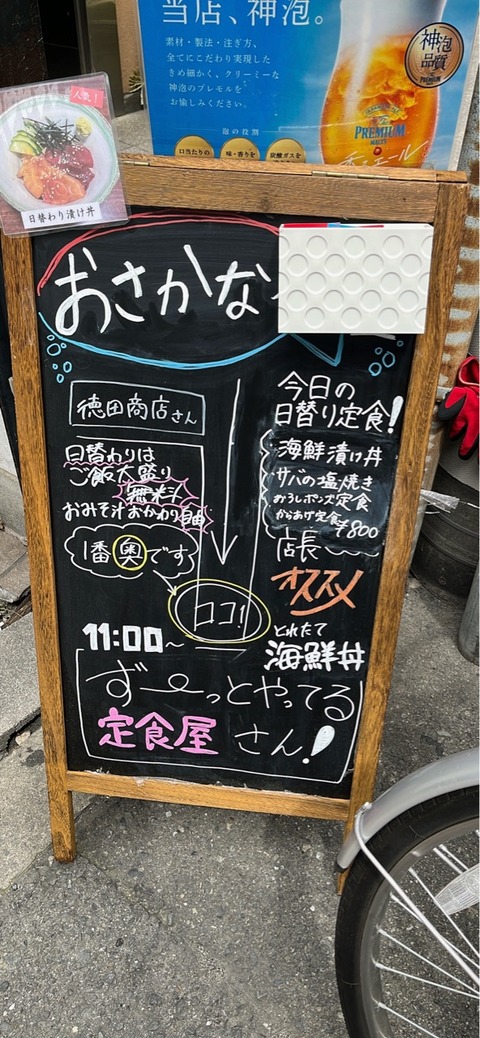 当店、神泡。
素材・製法・注ぎ方、
全てにこだわり実現した
きめ細かく、クリーミーな
神泡のプレモルを
お愉しみください。
泡の役割
口当たりの
味・香りを
炭酸ガスを
神泡
品質
PREMIUM
MALT'S
The
PREMIUM
MALT'S
香るエール
人気!
日替わり漬け丼
おさかな
徳田商店さん
日替わりは
ご飯大盛り
無料
おみそ汁おかわり自由
1番奥です
ココ!
今日の
日替り定食!
海鮮漬け丼
サバの塩焼き
おろしポンズ定食
からあげ定食
¥800
店長
オススメ
とれたて
海鮮丼
11:00~
ずーっとやってる
定食屋さん!